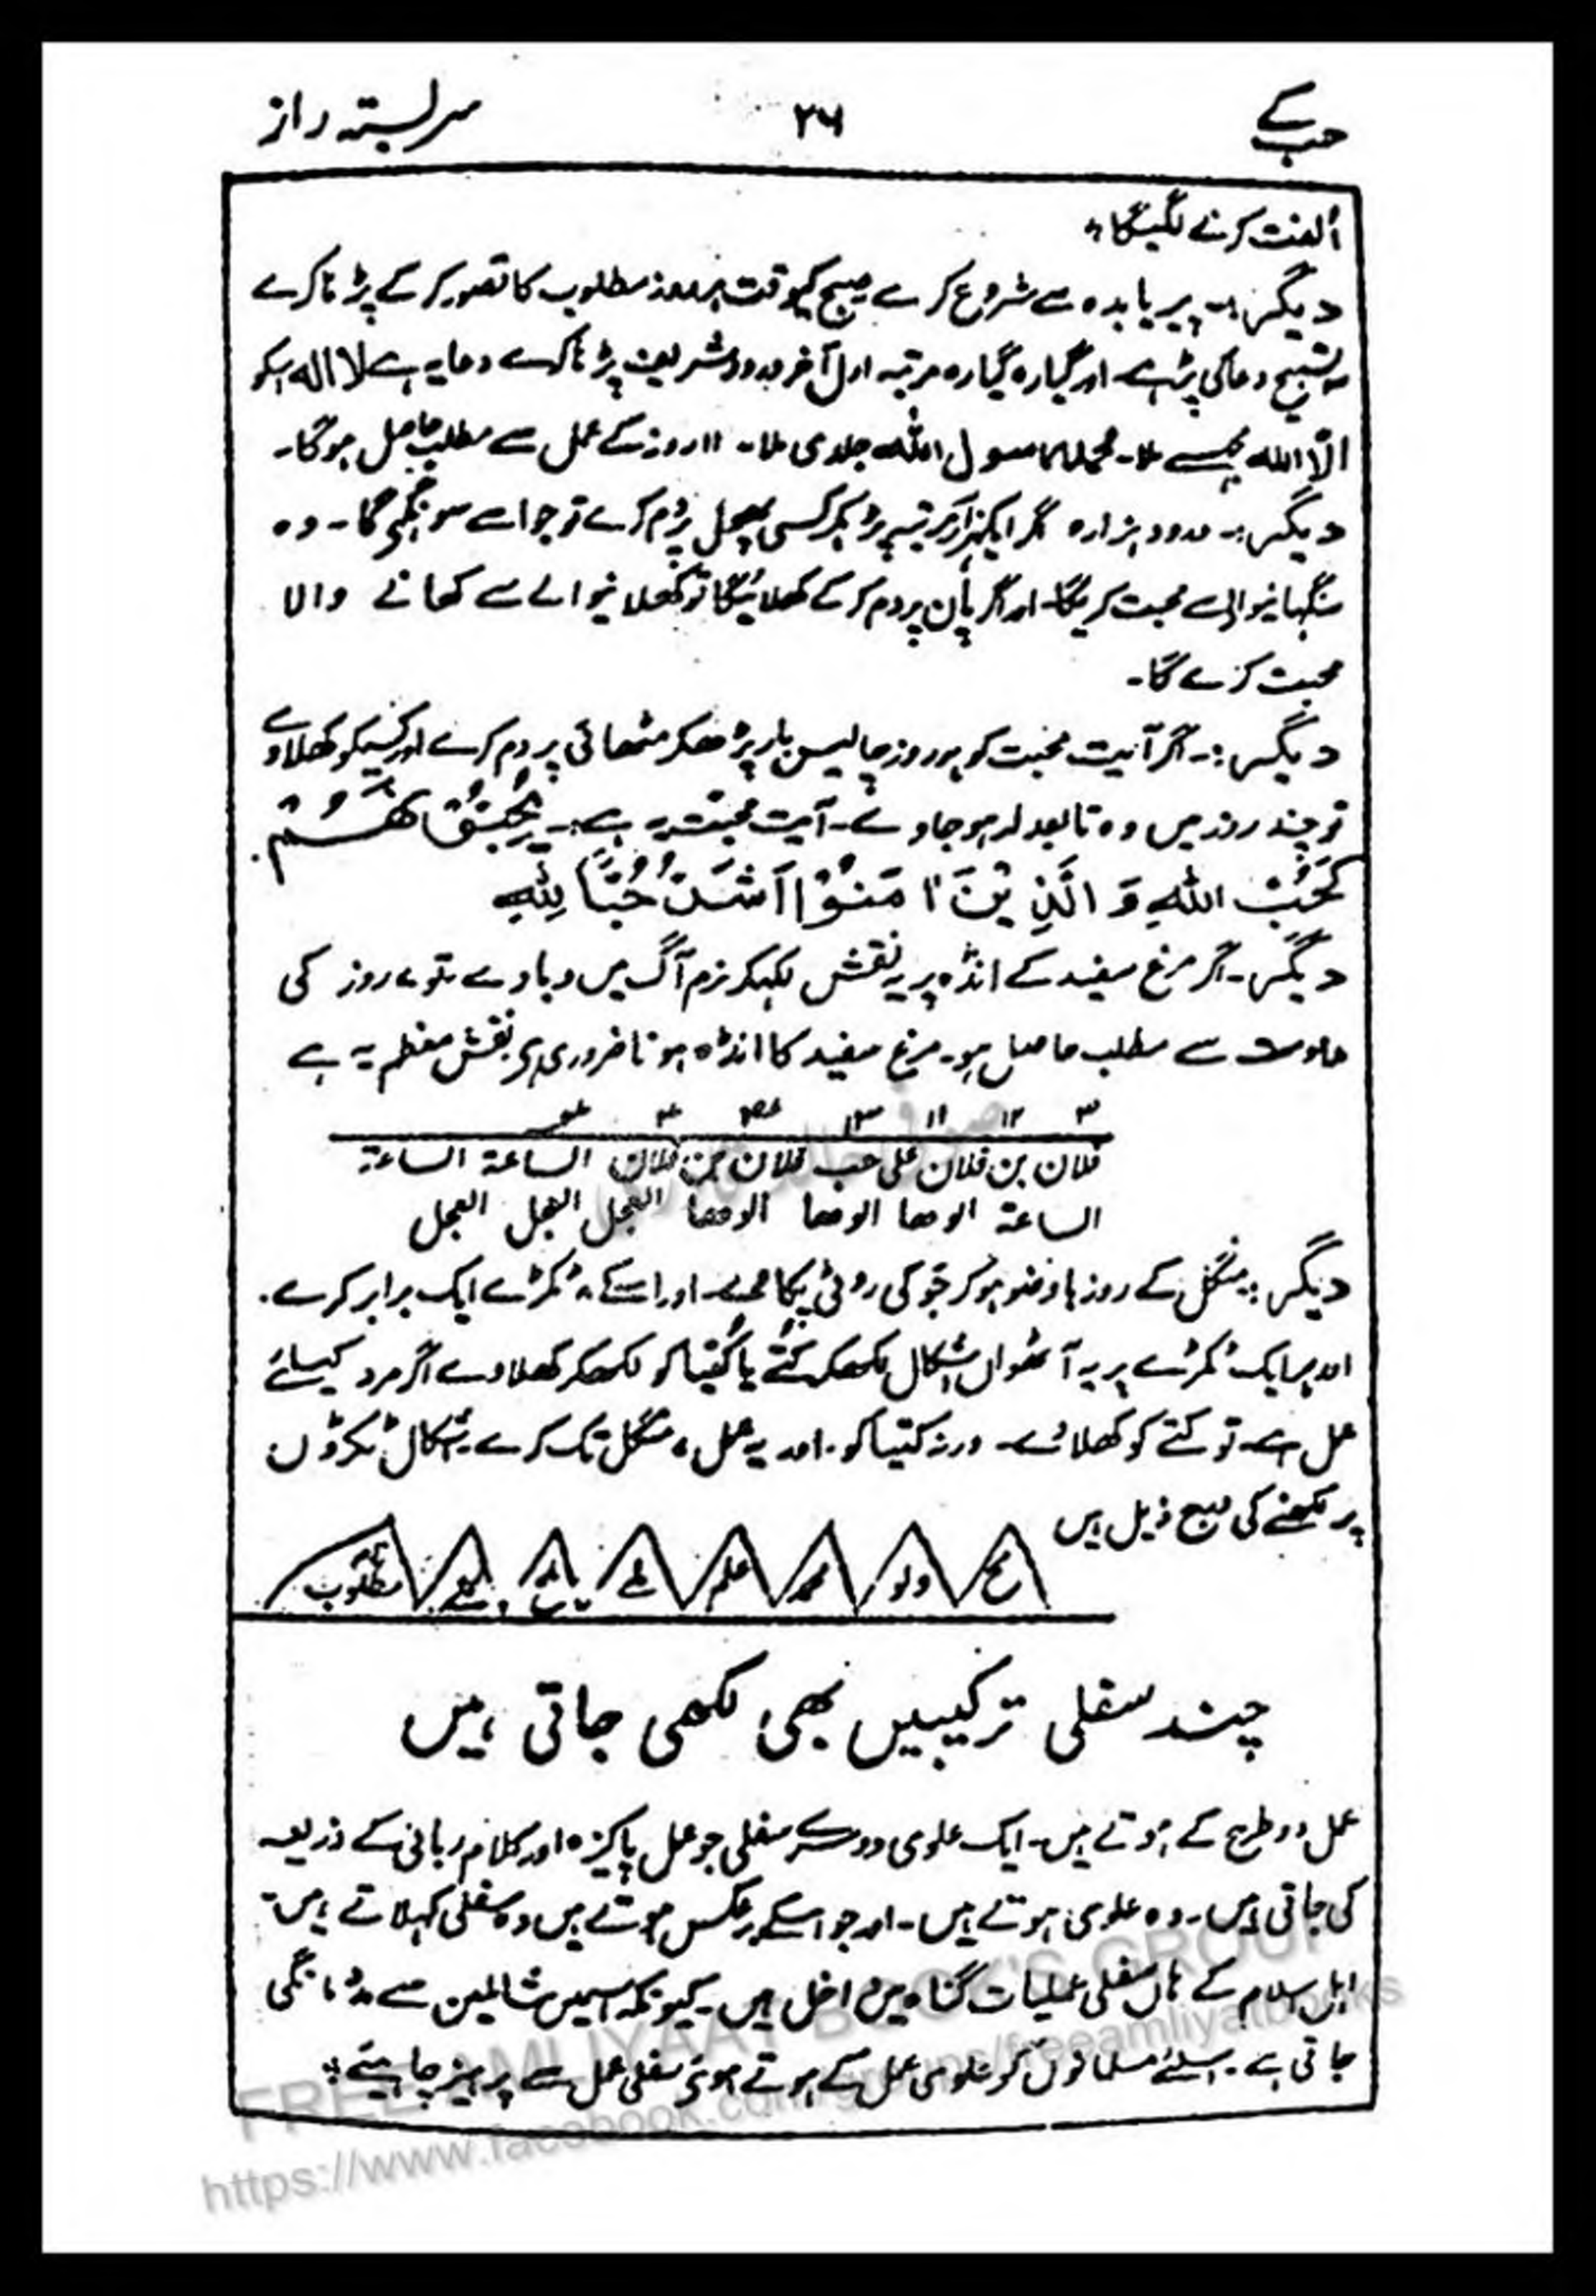 حب کے ۲۶ سربستہ راز
اُلفت کرنے لگیگا
دیگر:۔ پیر یا بدھ سے شروع کرے صبح کیوقت ہرروز مطلوب کا تصور کر کے پڑہا کرے
تسبیح دعا کی پڑہے اور گیارہ گیارہ مرتبہ اول آخر درود شریف پڑہا کرے دعا یہ ہے لا الہ
الّا اللہ محمد رسول اللہ جلدی ملا۔ ۱۱ روز کے عمل سے مطلب حاصل ہوگا۔
دیگر:۔ درود ہزارہ گر ایکہزار مرتبہ پڑہکر کسی پھول پر دم کرے تو جو اسے سونگہے گا۔ وہ
سنگہانیوالے سے محبت کریگا۔ اور اگر پان پر دم کر کے کھلائیگا تو کھلانیوالے سے کھانے والا
محبت کرے گا۔
دیگر:۔ اگر آیت محبت کو ہر روز چالیس بار پڑھکر مٹھائی پر دم کرے اور کسیکو کھلاوے
تو چند روز میں وہ تابعدار ہو جاوے۔ آیت محبت یہ ہے:۔ یُحِبُّوْنَھُمْ
کَحُبِّ اللّٰہِ وَ الَّذِیْنَ اٰمَنُوْا اَشَدُّ حُبًّا لِلّٰہِ
دیگر۔ اگر مرغ سفید کے انڈہ پر یہ نقش لکہکر نرم آگ میں دباوے تو ۷ روز کی
مداومت سے مطلب حاصل ہو۔ مرغ سفید کا انڈہ ہونا ضروری ہے نقش معظم یہ ہے
۳ ۱۲ ۱۱ ۱۳
فلان بن فلان علی حب فلان بن فلان الساعة الساعة
الساعة الوحا الوحا الوحا العجل العجل العجل
دیگر: منگل کے روز باوضو ہو کر جَو کی روٹی پکاوے۔ اور اسکے ۸ ٹکڑے ایک برابر کرے۔
اور ہر ایک ٹکڑے پر یہ آٹھواں اشکال لکھکر کتّے یا کُتیا کو لکھکر کھلاوے اگر مرد کیلئے
عمل ہے۔ تو کتے کو کھلائے۔ ورنہ کتیا کو۔ اور یہ عمل ۷ منگل تک کرے۔ اشکال ٹکڑوں
پر لکھنے کی ذیل ہیں
ولو محمد علم مطلوب
چند سفلی ترکیبیں بھی لکھی جاتی ہیں
عمل دو طرح کے ہوتے ہیں۔ ایک علوی دوسرے سفلی جو عمل پاکیزہ اور کلام ربانی کے ذریعہ
کی جاتی ہیں۔ وہ علوی ہوتے ہیں۔ اور جو اسکے برعکس ہوتے ہیں وہ سفلی کہلاتے ہیں۔
اہل اسلام کے ہاں سفلی عملیات گناہ میں داخل ہیں۔ کیونکہ اسمیں شیاطین سے مدد مانگی
جاتی ہے۔ اسلئے مسلمانوں کو علوی عمل کے ہوتے ہوئے سفلی عمل سے پرہیز چاہیئے
FREE AMLIYAAT BOOK'S GROUP
https://www.facebook.com/groups/freeamliyatbooks